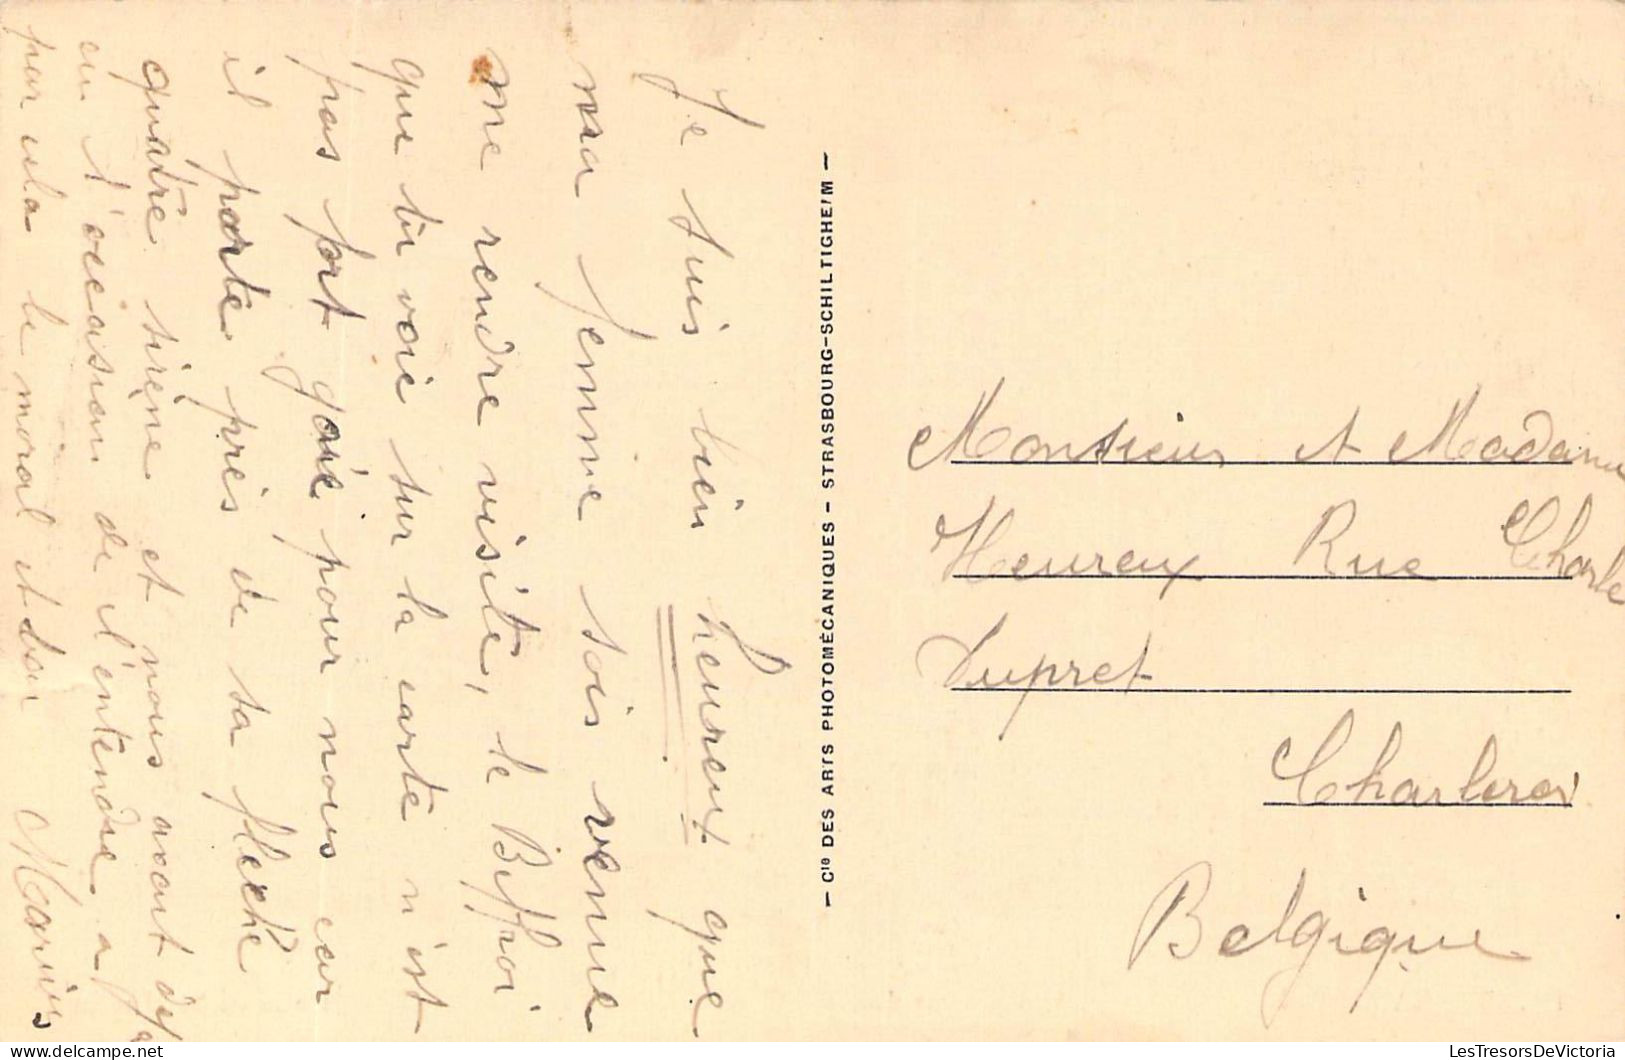 Je suis bien heureux que
ma femme sois venue
me rendre visite, le Beffroi
que tu voie sur la carte n'est
pas fort gaie pour nous car
il porte près de sa flèche
quatre sirène et nous avont déja
eu l'occasion de l'entendre a
par cela le moral et bon Marius
— Cie DES ARTS PHOTOMÉCANIQUES — STRASBOURG-SCHILTIGHEIM —
Monsieur et Madame
Heureux Rue Charle
Dupret
Charleroi
Belgique
LesTresorsDeVictoria